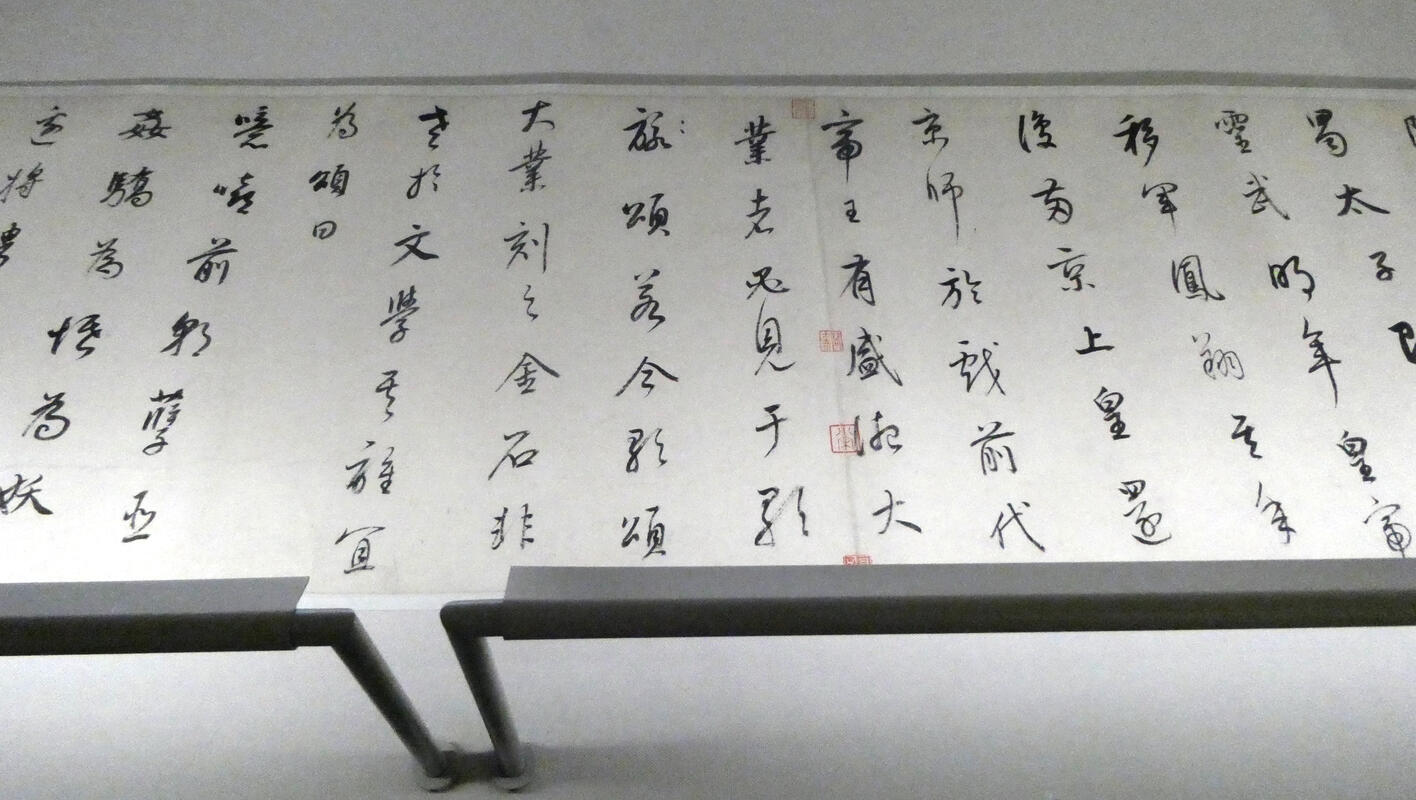 蜀太子
靈武明年皇帝
移軍鳳翔其年
復兩京上皇還
京師於戲前代
帝王有盛德大
業者必見于歌
頌若今歌頌
大業刻之金石非
老於文學其誰宜
為頌曰
噫嘻前朝孽臣
姦驕為惛為妖
邊將騁